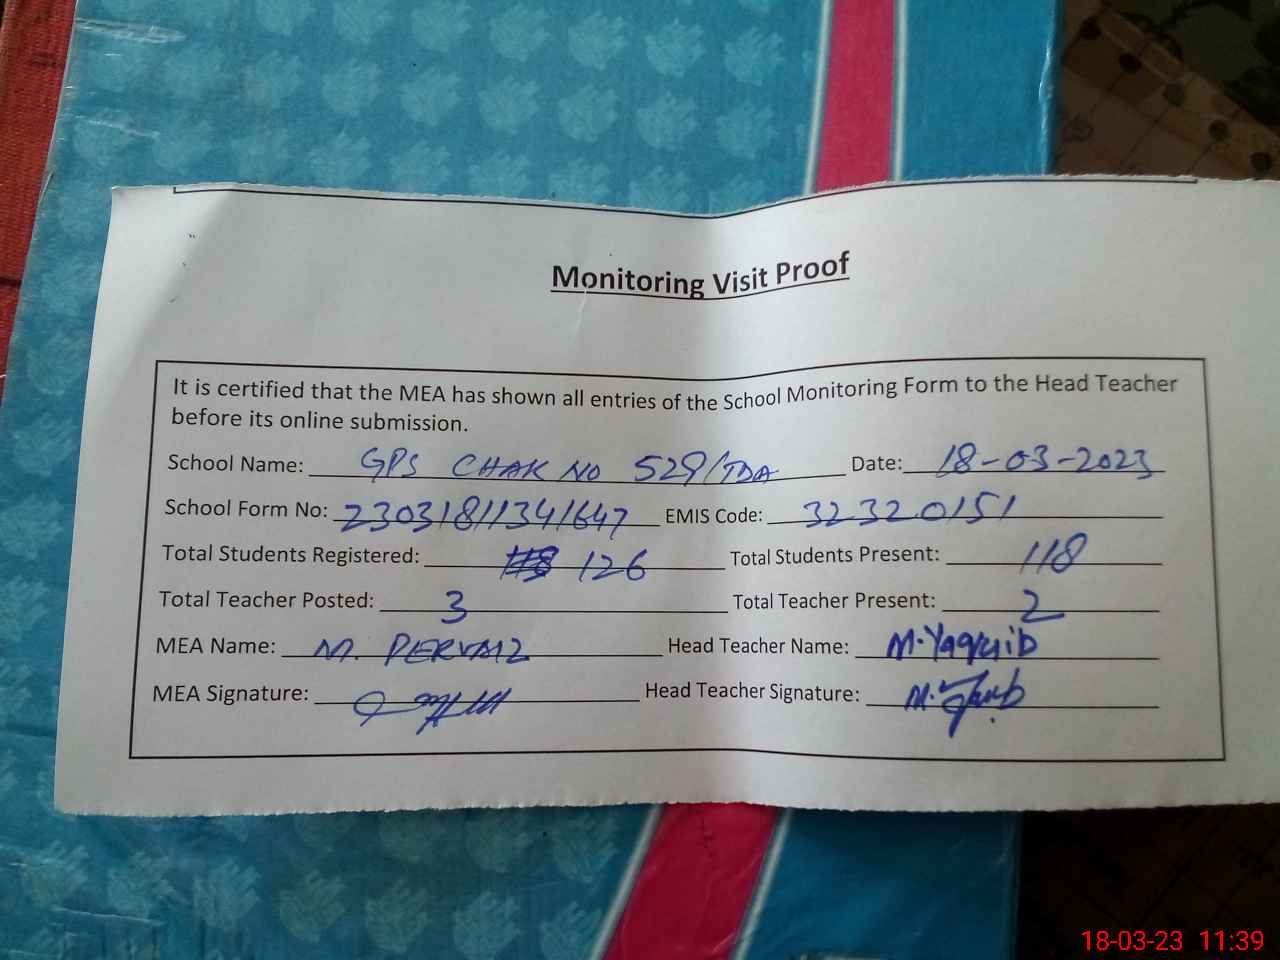 Monitoring Visit Proof
It is certified that the MEA has shown all entries of the School Monitoring Form to the Head Teacher
before its online submission.
School Name: GPS CHAK NO 529/TDA Date: 18-03-2023
School Form No: 23031811341647 EMIS Code: 32320151
Total Students Registered: 126 Total Students Present: 118
Total Teacher Posted: 3 Total Teacher Present: 2
MEA Name: M. PERVAIZ Head Teacher Name: M.Yaquib
MEA Signature: Head Teacher Signature:
18-03-23 11:39